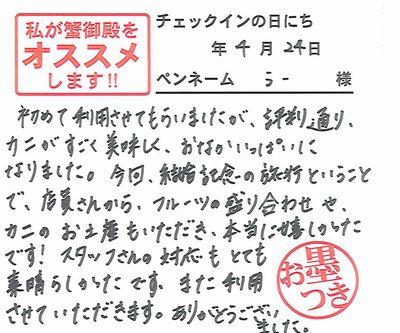 私が蟹御殿を
オススメ
します!!
チェックインの日にち
年4月24日
ペンネーム うー 様
初めて利用させてもらいましたが、評判通り、
カニがすごく美味しく、おなかいっぱいに
なりました。今回、結婚記念の旅行ということ
で、店員さんから、フルーツの盛り合わせや、
カニのお土産もいただき、本当に嬉しかった
です!スタッフさんの対応もとても
素晴らしかったです。また利用
させていただきます。ありがとうござい
ました。
お墨
つき